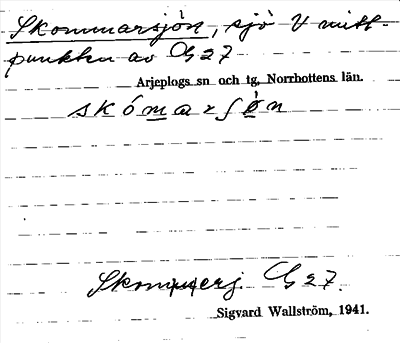 Skommarsjön, sjö V mitt-
punkten av G 27
Arjeplogs sn och tg, Norrbottens län.
skómarʃö̀n
G 27.
Sigvard Wallström, 1941.